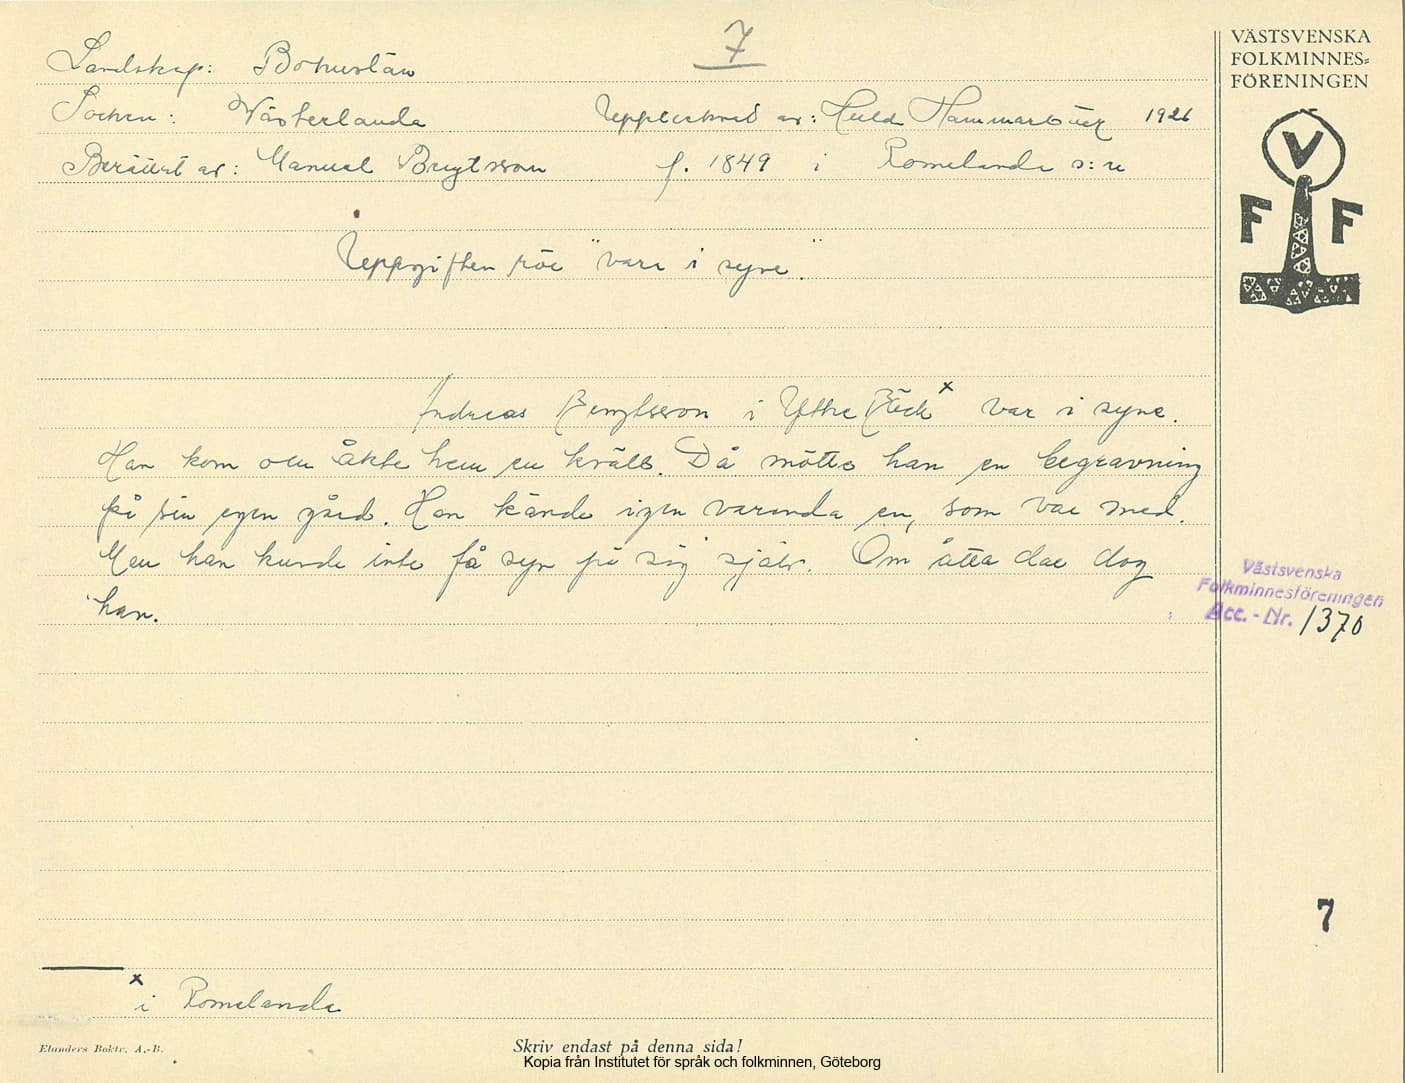 7
VÄSTSVENSKA
FOLKMINNES=
FÖRENINGEN
Landskap: Bohuslän
Socken: Västerlanda Upptecknad av: Huld Hammarbäck 1926
Berättat av: Manuel Bengtsson f. 1849 i Romelanda s:n
V
F F
Uppgiften rör "vara i syne".
Andreas Bengtsson i Yttre Bäck x var i syne.
Han kom och åkte hem en kväll. Då mötte han en begravning
på sin egen gård. Han kände igen varenda en, som var med.
Men han kunde inte få syn på sig själv. Om åtta dar dog
han.
Västsvenska
Folkminnesföreningen
Acc.-Nr. 1370
7
x
i Romelanda
Elanders Boktr. A.-B.
Skriv endast på denna sida!
Kopia från Institutet för språk och folkminnen, Göteborg